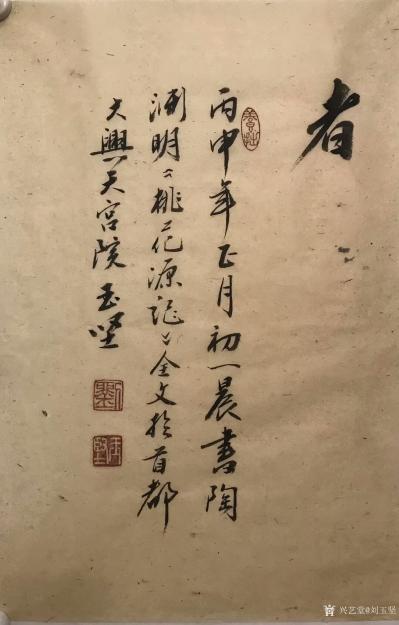 者
丙申年正月初一晨书陶
渊明《桃花源记》全文于首都
大興天宫院玉坚
兴艺堂@刘玉坚